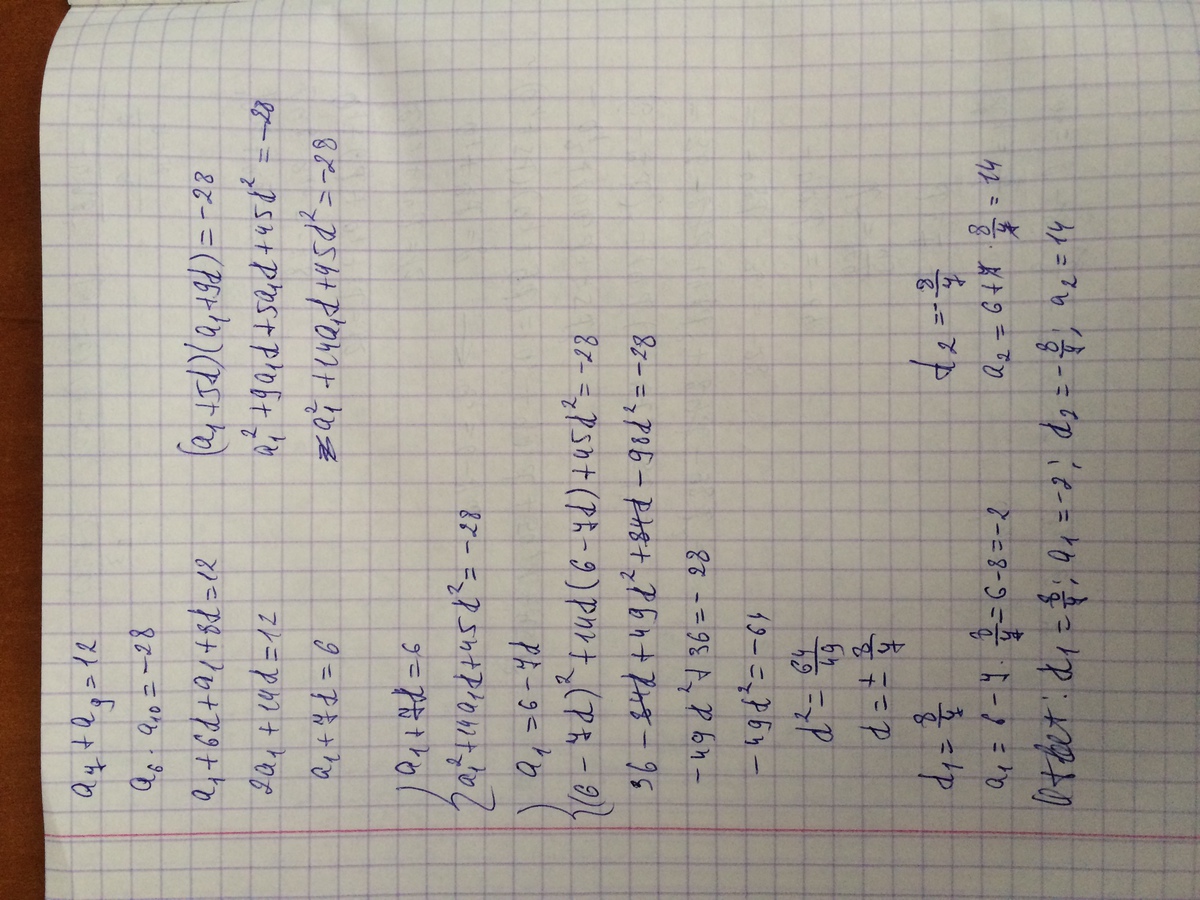 a₇ + a₉ = 12
a₆ · a₁₀ = -28
a₁ + 6d + a₁ + 8d = 12
(a₁ + 5d)(a₁ + 9d) = -28
2a₁ + 14d = 12
a₁² + 9a₁d + 5a₁d + 45d² = -28
a₁ + 7d = 6
a₁² + 14a₁d + 45d² = -28
{ a₁ + 7d = 6
a₁² + 14a₁d + 45d² = -28
{ a₁ = 6 - 7d
(6 - 7d)² + 14d(6 - 7d) + 45d² = -28
36 - 84d + 49d² + 84d - 98d² = -28
-49d² + 36 = -28
-49d² = -64
d² = 64/49
d = ± 8/7
d₁ = 8/7
d₂ = -8/7
a₁ = 6 - 7 · 8/7 = 6 - 8 = -2
a₂ = 6 + 7 · 8/7 = 14
Ответ: d₁ = 8/7; a₁ = -2; d₂ = -8/7; a₂ = 14